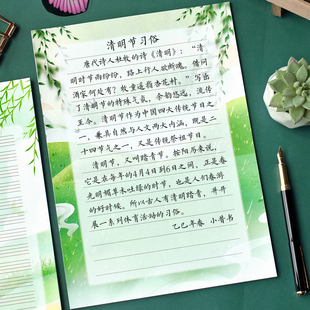 清明节习俗
唐代诗人杜牧的诗《清明》：“清
明时节雨纷纷，路上行人欲断魂。借问
酒家何处有？牧童遥指杏花村。”写出
了清明节的特殊气氛，余韵悠远，流传
至今。清明节作为中国四大传统节日之
一，兼具自然与人文两大内涵，既是二
十四节气之一，又是传统祭祖节日。
清明节，又叫踏青节，按阳历来说，
它是在每年的4月4日到6日之间，正是春
光明媚草木吐绿的时节，也是人们春游
的好时候。所以古人有清明踏青，并开
展一系列体育活动的习俗。
乙巳年春 小普书